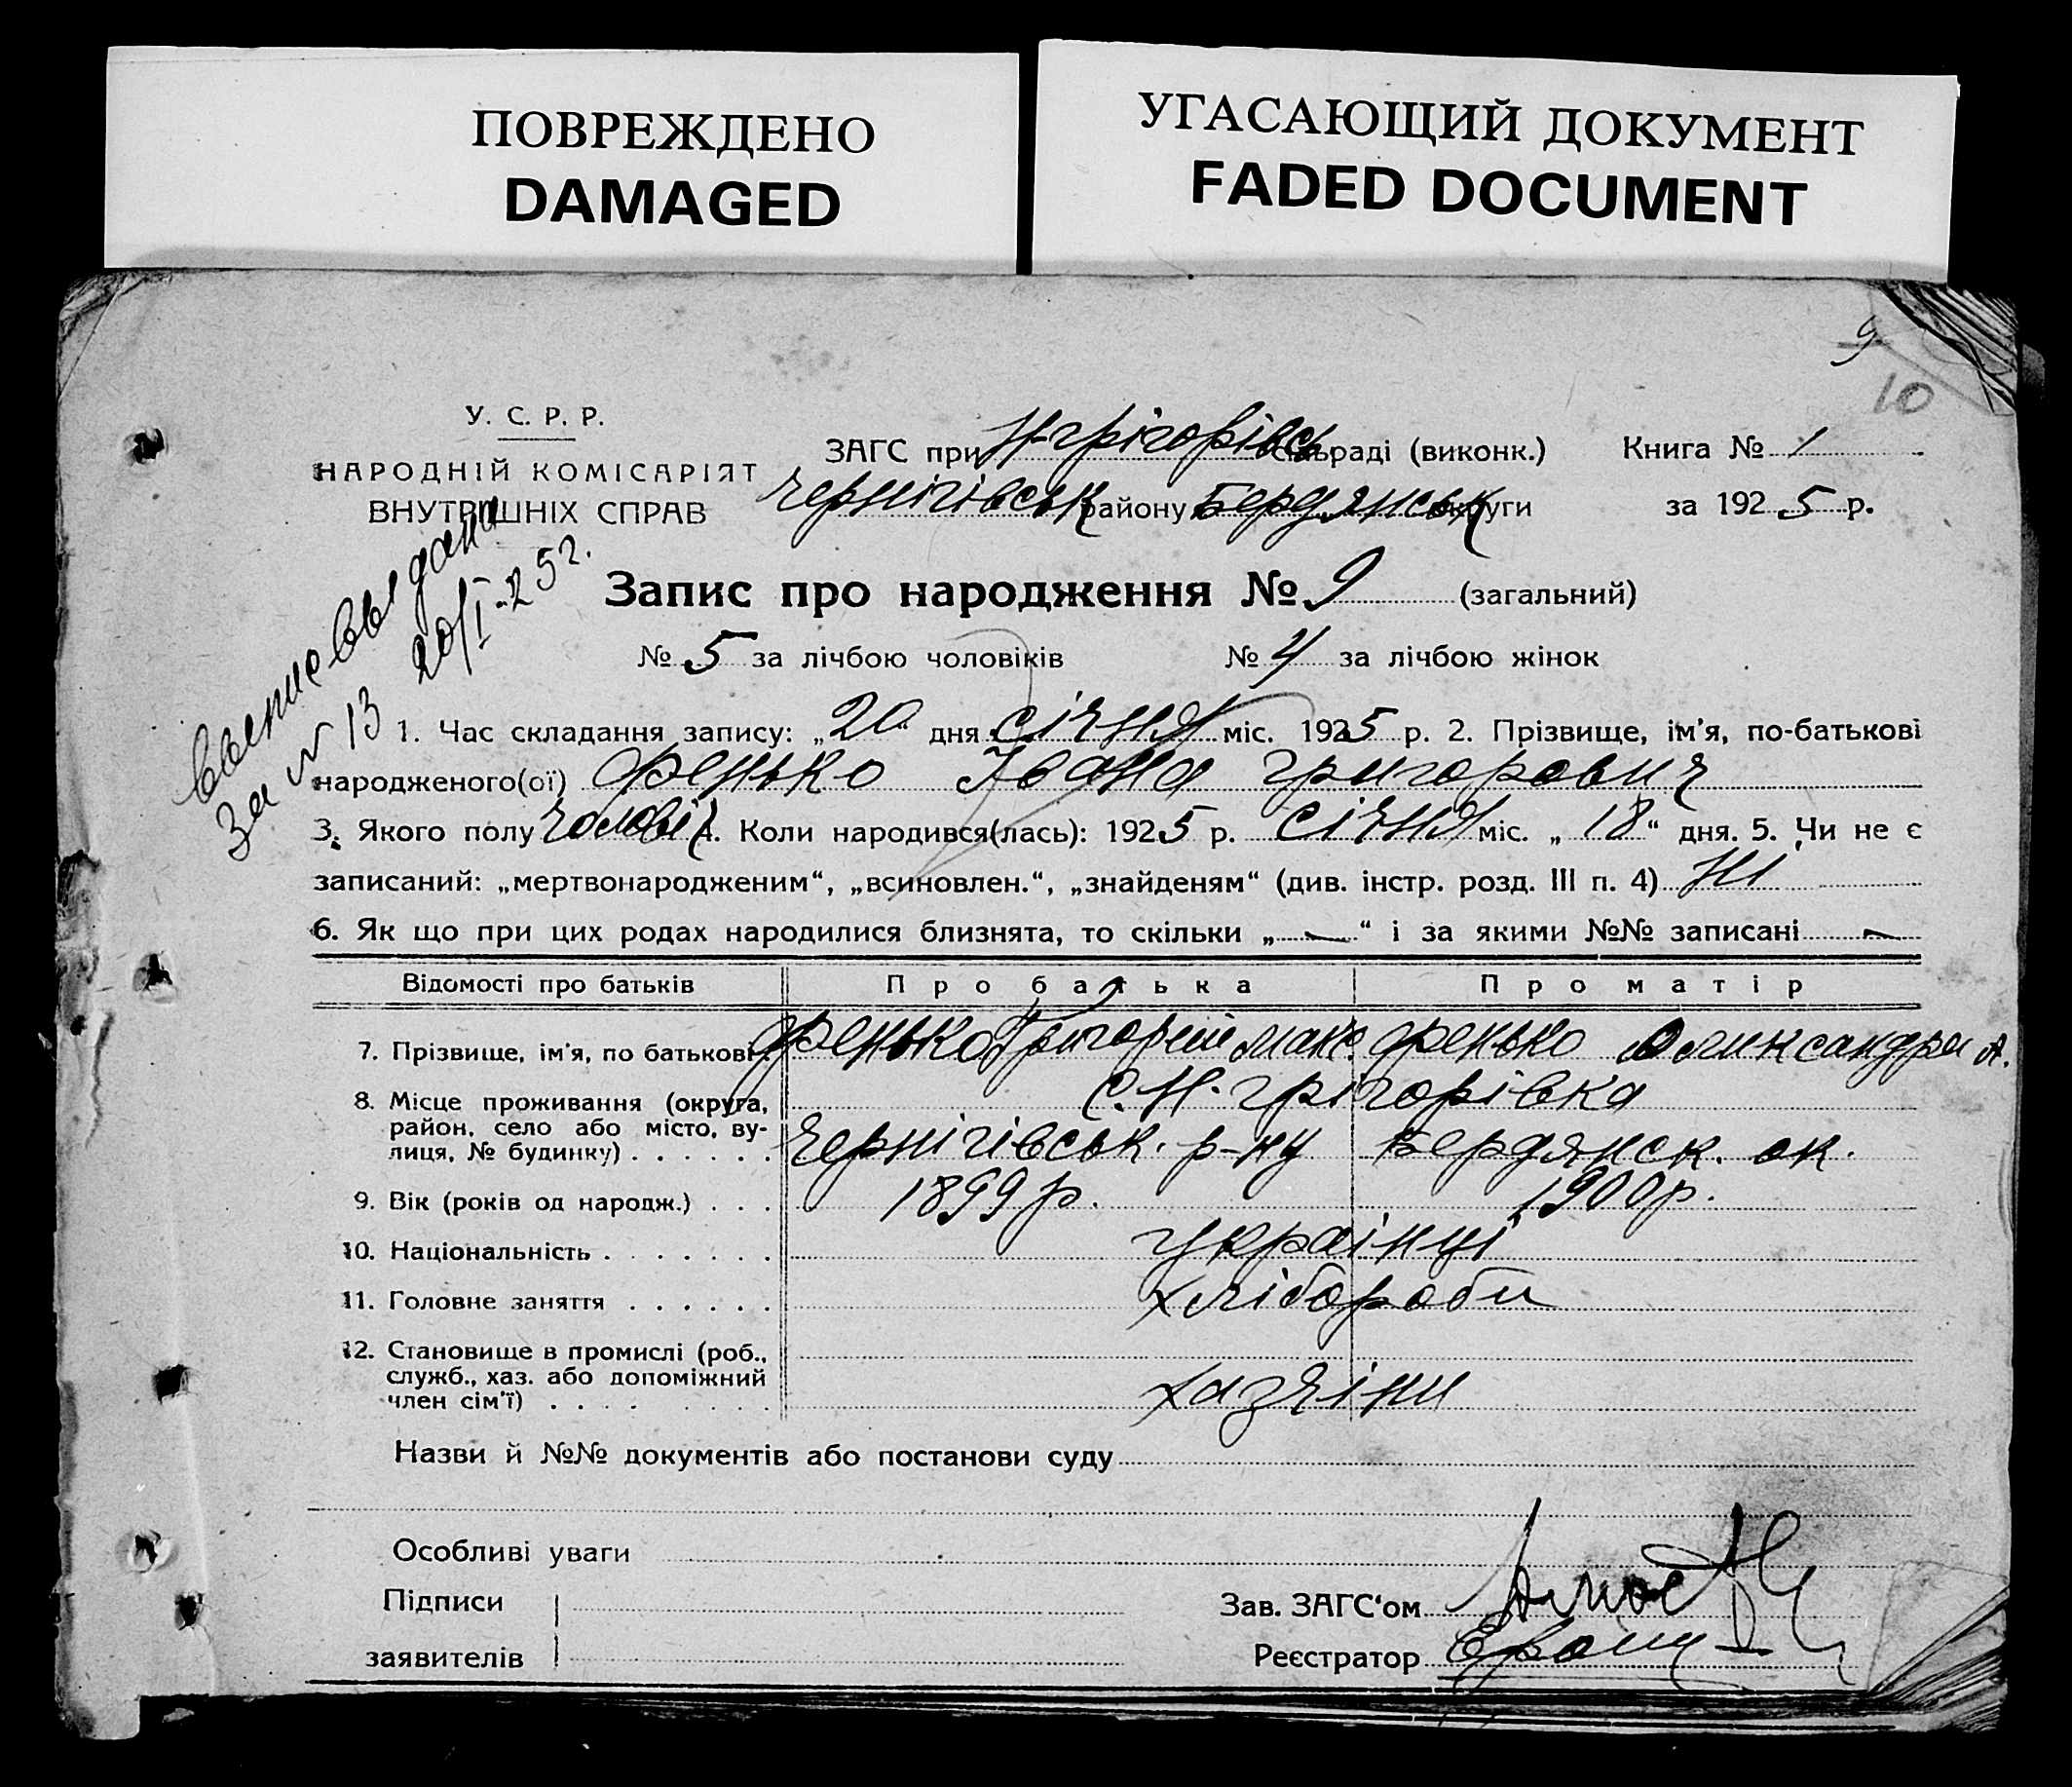 ПОВРЕЖДЕНО
DAMAGED
УГАСАЮЩИЙ ДОКУМЕНТ
FADED DOCUMENT
9
10
У. С. Р. Р.
НАРОДНІЙ КОМІСАРІЯТ
ВНУТРІШНІХ СПРАВ
ЗАГС при Н-Грігорівс сільраді (виконк.) Книга № 1
Чернігівськ району Бердянськ округи за 1925 р.
выдана
За № 13 20/I-25 г.
Запис про народження № 9 (загальний)
№ 5 за лічбою чоловіків № 4 за лічбою жінок
1. Час складання запису: „20 дня січня міс. 1925 р. 2. Прізвище, ім'я, по-батькові
народженого(ої) Фенько Івана Григорович
3. Якого полу чоловік 4. Коли народився(лась): 1925 р. січня міс. „18“ дня. 5. Чи не є
записаний: „мертвонародженим“, „всиновлен.“, „знайденям“ (див. інстр. розд. III п. 4) Ні
6. Як що при цих родах народилися близнята, то скільки „—“ і за якими №№ записані —
Відомості про батьків Про батька Про матір
7. Прізвище, ім'я, по батькові. Фенько Григорей Макс Фенько Олександра А.
8. Місце проживання (округа, С. Н. Грігорівка
район, село або місто, ву-
лиця, № будинку) . . . . . . Чернігівськ. р-ну Бердянск. ок.
9. Вік (років од народж.) . . . 1899 р. 1900 р.
10. Національність . . . . . . . українці
11. Головне заняття . . . . . . хлібороби
12. Становище в промислі (роб.,
служб., хаз. або допоміжний
член сім'ї) . . . . . . . . хазяіни
Назви й №№ документів або постанови суду
Особливі уваги
Підписи
заявителів
Зав. ЗАГС‘ом
Реєстратор